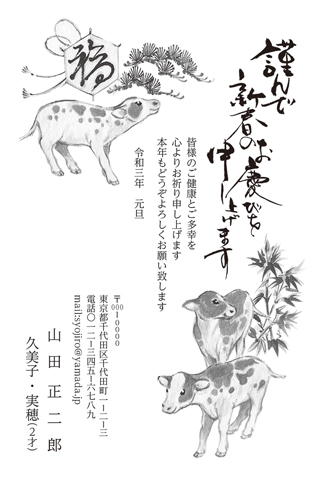 謹んで
新春のお慶びを
申し上げます
皆様のご健康とご多幸を
心よりお祈り申し上げます
本年もどうぞよろしくお願い致します
令和三年 元旦
福
〒000-0000
東京都千代田区千代田町一-二-三
電話〇一二-三四五-六七八九
mail:syojiro@yamada.jp
山田正二郎
久美子・実穂(2才)